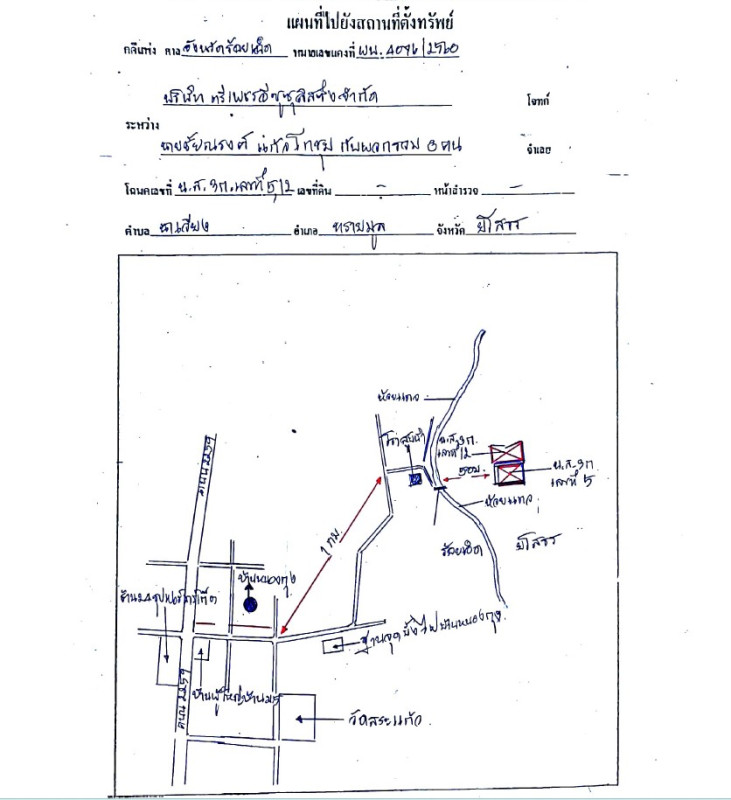 แผนที่ไปยังสถานที่ตั้งทรัพย์
คดีแพ่ง ศาล จังหวัดร้อยเอ็ด หมายเลขแดงที่ ผบ. 4076/2560
บริษัท ตรีเพชรอีซูซุลิสซิ่ง จำกัด โจทก์
ระหว่าง
นายชัยณรงค์ แก้วโกรุม กับพวกรวม 3 คน จำเลย
โฉนดเลขที่ น.ส.3ก.เลขที่ 5,12 เลขที่ดิน - หน้าสำรวจ -
ตำบล นาเวียง อำเภอ ทรายมูล จังหวัด ยโสธร
ห้วยแกว
โรงสูบน้ำ
น.ส.3ก.
เลขที่ 12
50ม.
น.ส.3ก
เลขที่ 5
ห้วยแกว
ร้อยเอ็ด
ยโสธร
1 กม.
ถนน 2259
บ้านหนองกุง
ฐานจุดบั้งไฟบ้านหนองกุง
บ้านผู้ใหญ่บ้าน ม.5
วัดสระแก้ว
ถนน 2259